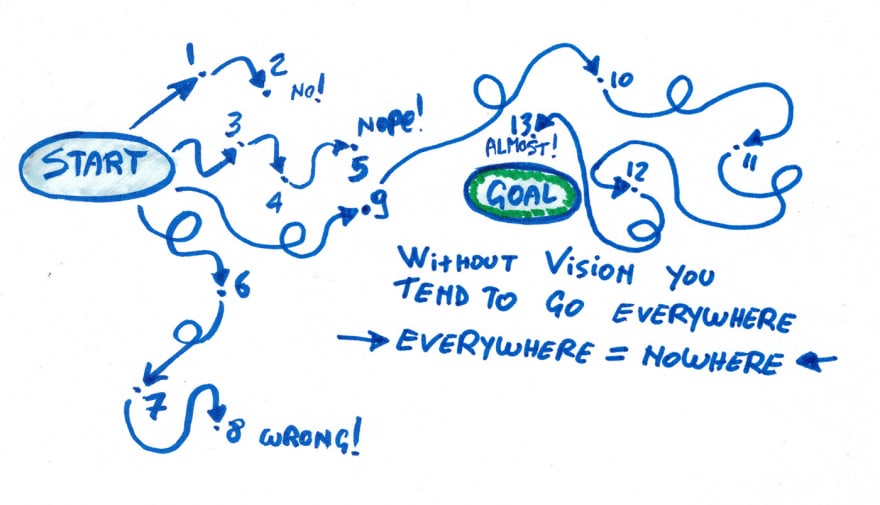 1
2
NO!
START
3
4
5
NOPE!
6
7
8 WRONG!
9
10
11
12
13
ALMOST!
GOAL
WITHOUT VISION YOU
TEND TO GO EVERYWHERE
EVERYWHERE = NOWHERE